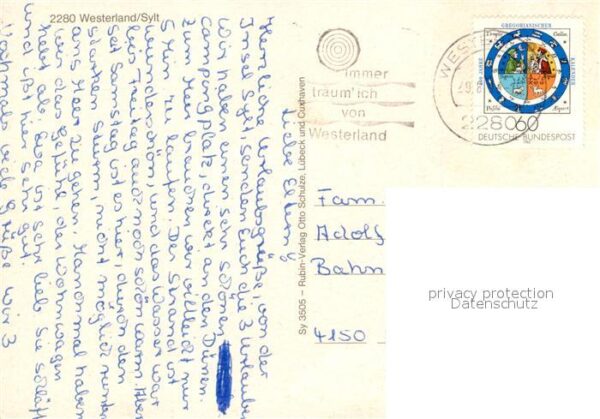 2280 Westerland/Sylt
Liebe Eltern!
Herzliche Urlaubsgrüße, von der
Insel Sylt, senden Euch die 3 Urlauber
Wir haben einen sehr schönen
Campingplatz, direkt an den Dünen.
Zum Meer brauchen wir vielleicht nur
5 Min zu laufen. Der Strand ist
wunderschön, und das Wasser war
bis Freitag auch noch schön warm. Aber
seit Samstag ist es hier, durch den
starken Sturm, nicht möglich runter
ans Meer zu gehen. Manchmal haben
wir das Gefühl, der Wohnwagen
hebt ab. Eva ist sehr lieb sie schläft
und ißt hier sehr gut.
Nochmals viele Grüße wir 3
Sy 3505 – Rubin-Verlag Otto Schulze, Lübeck und Cuxhaven
immer
träum' ich
von
Westerland
WEST
2280
GREGORIANISCHER
KALENDER
60
DEUTSCHE BUNDESPOST
Fam.
Adolf
Bahn
4150
privacy protection
Datenschutz